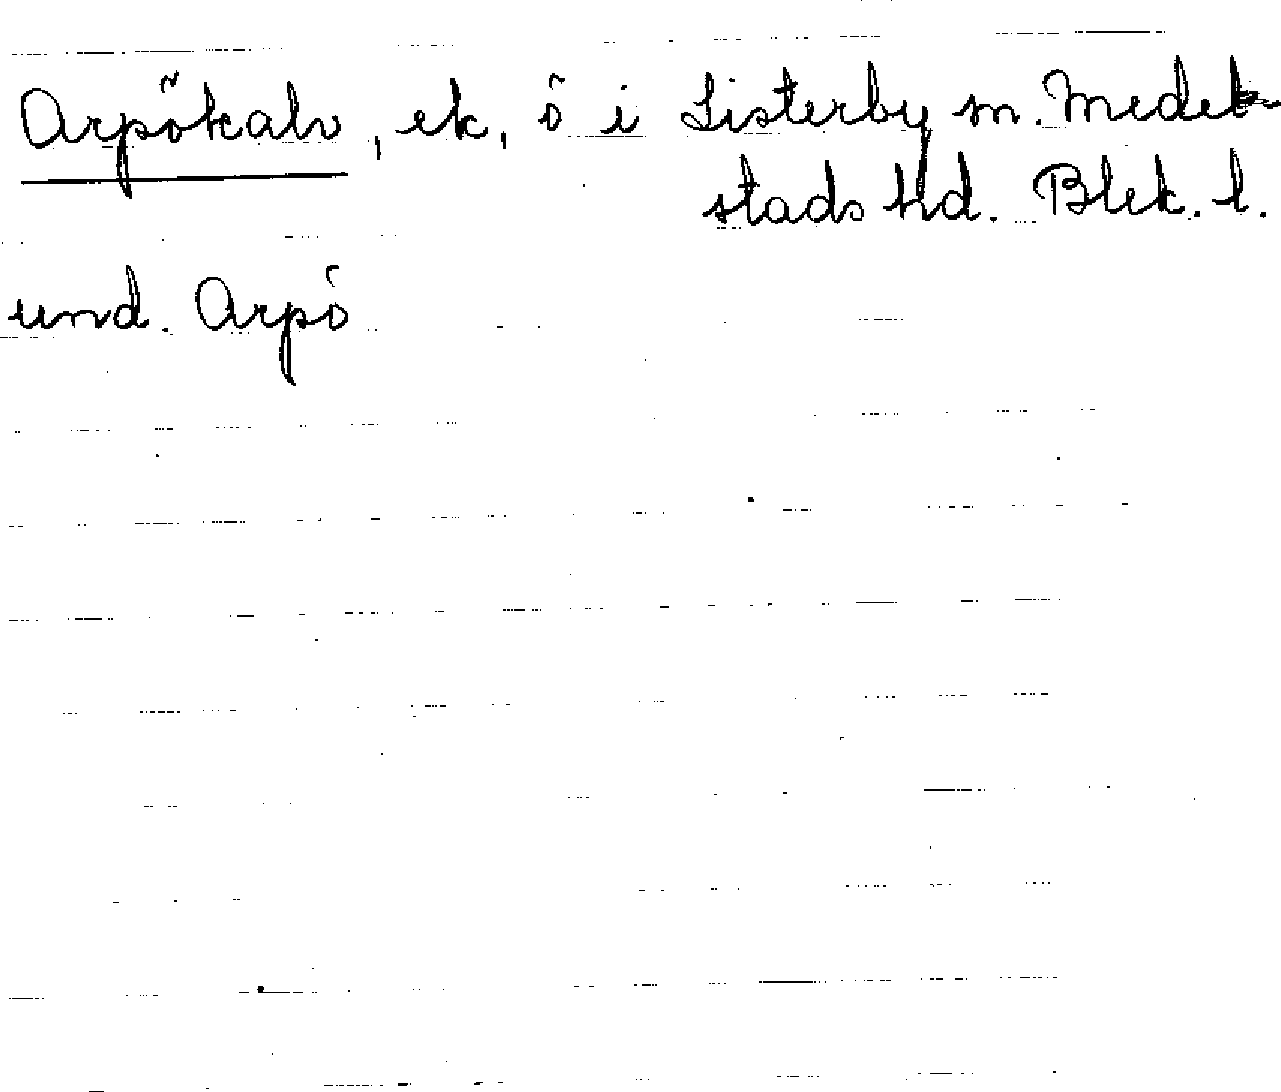 Arpökalv, ek, ö i Listerby sn. Medel-
stads hd. Blek. l.
und. Arpö